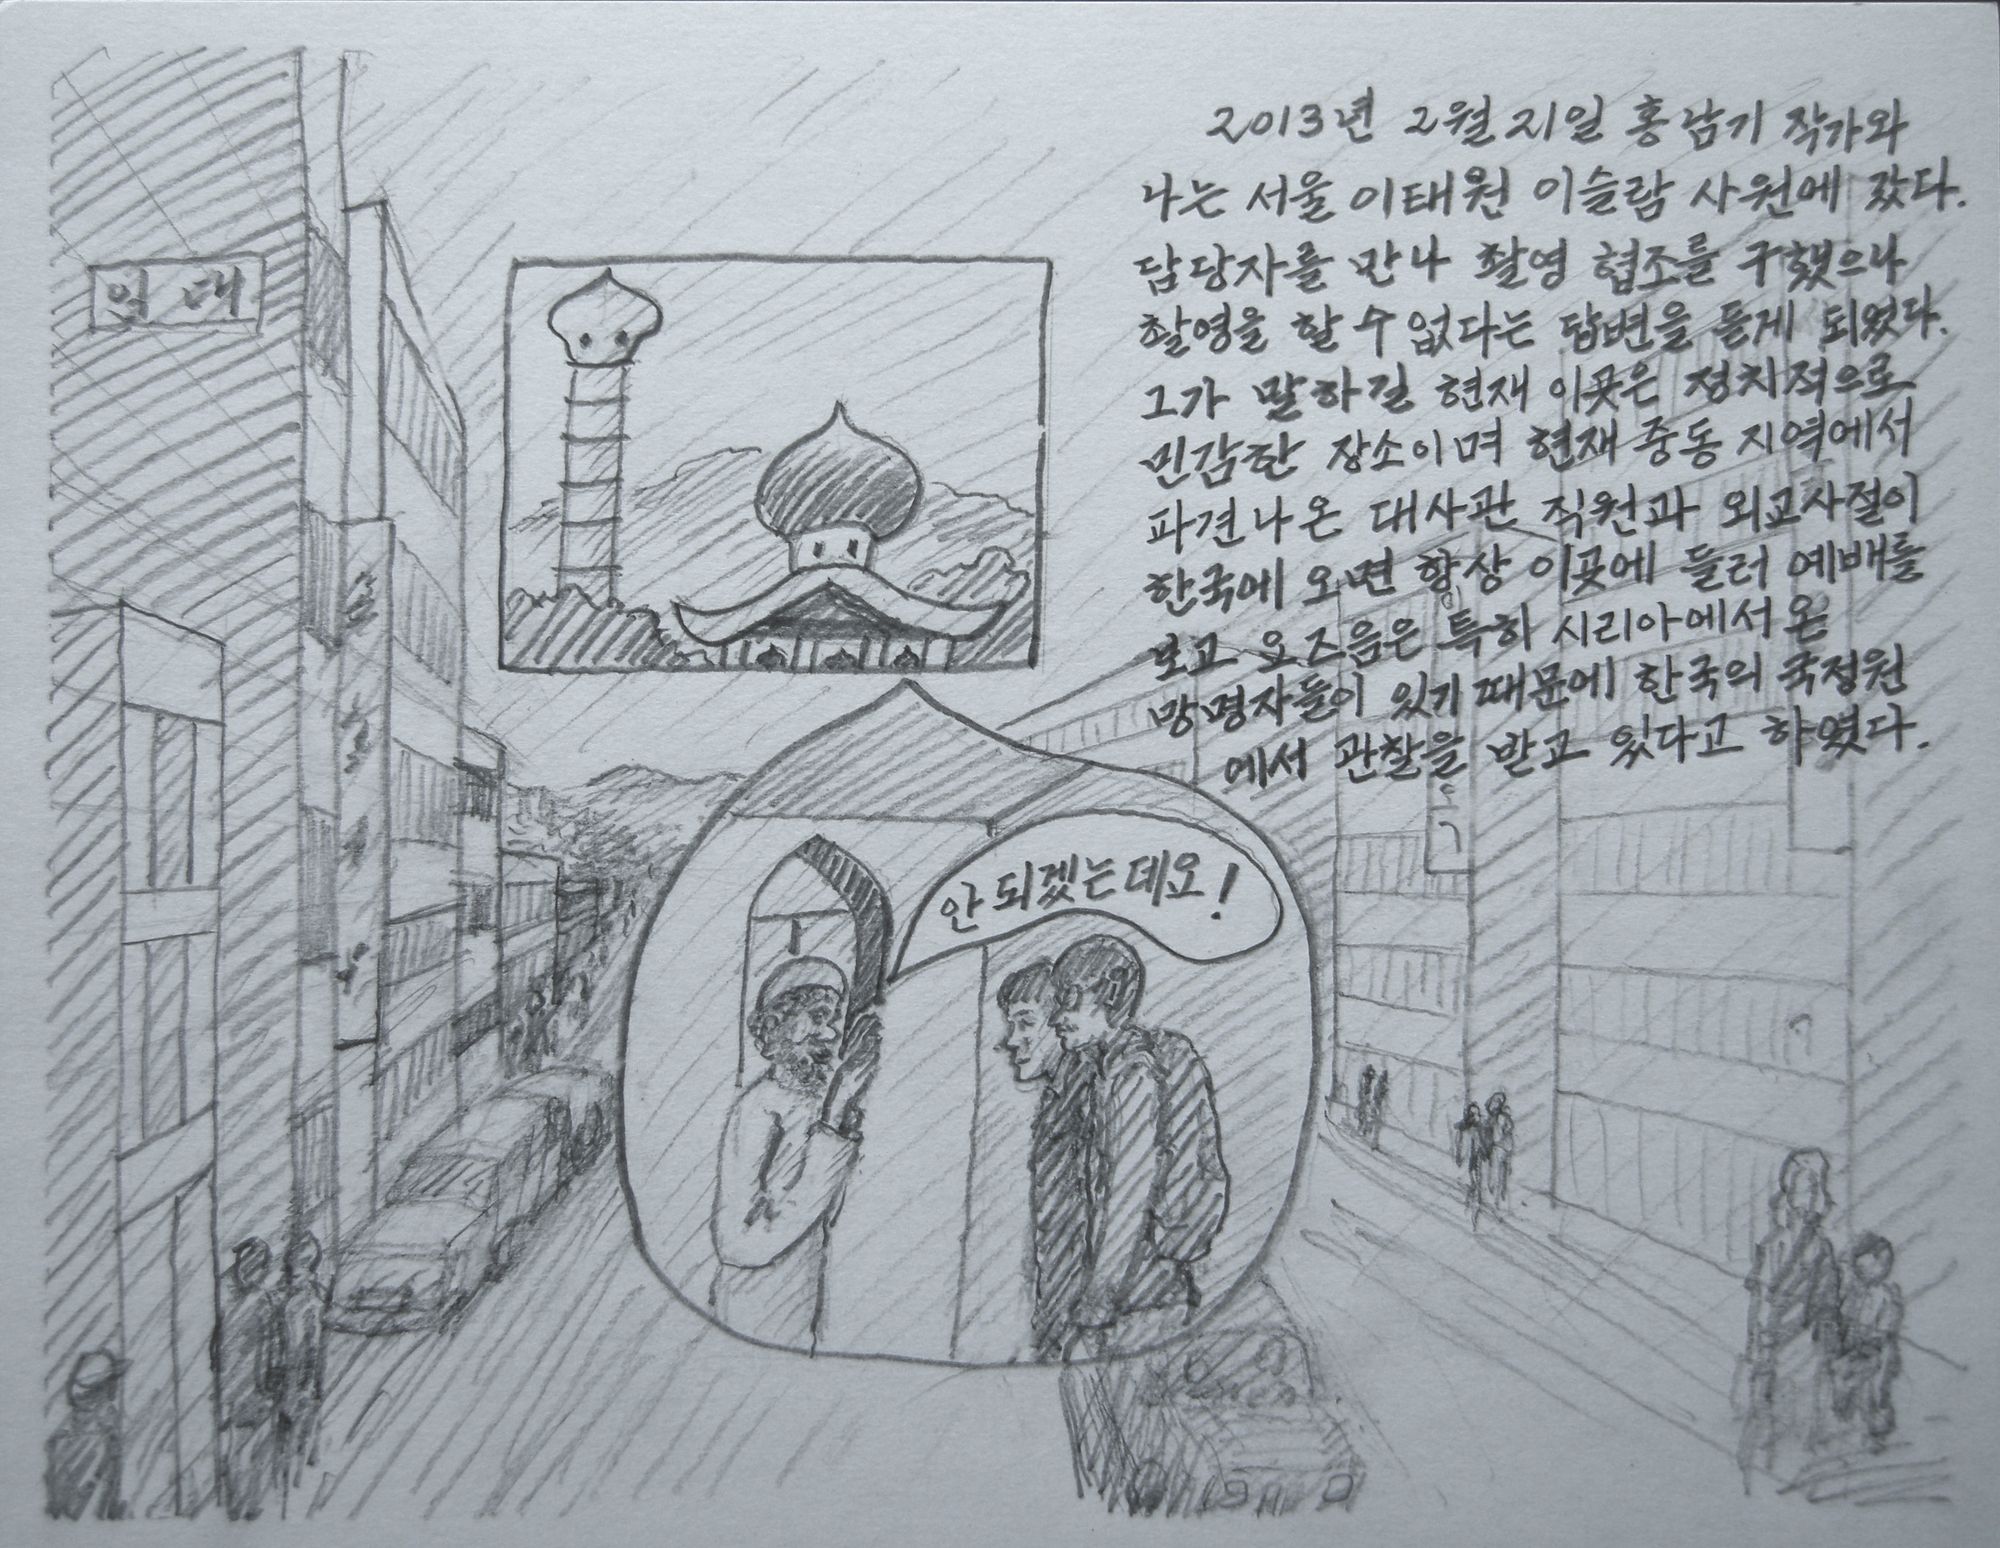 2013년 2월 21일 홍남기 작가와
나는 서울 이태원 이슬람 사원에 갔다.
담당자를 만나 촬영 협조를 구했으나
촬영을 할 수 없다는 답변을 듣게 되었다.
그가 말하길 현재 이곳은 정치적으로
민감한 장소이며 현재 중동 지역에서
파견나온 대사관 직원과 외교사절이
한국에 오면 항상 이곳에 들러 예배를
보고 요즈음은 특히 시리아에서 온
망명자들이 있기 때문에 한국의 국정원
에서 관찰을 받고 있다고 하였다.
임대
안 되겠는데요!